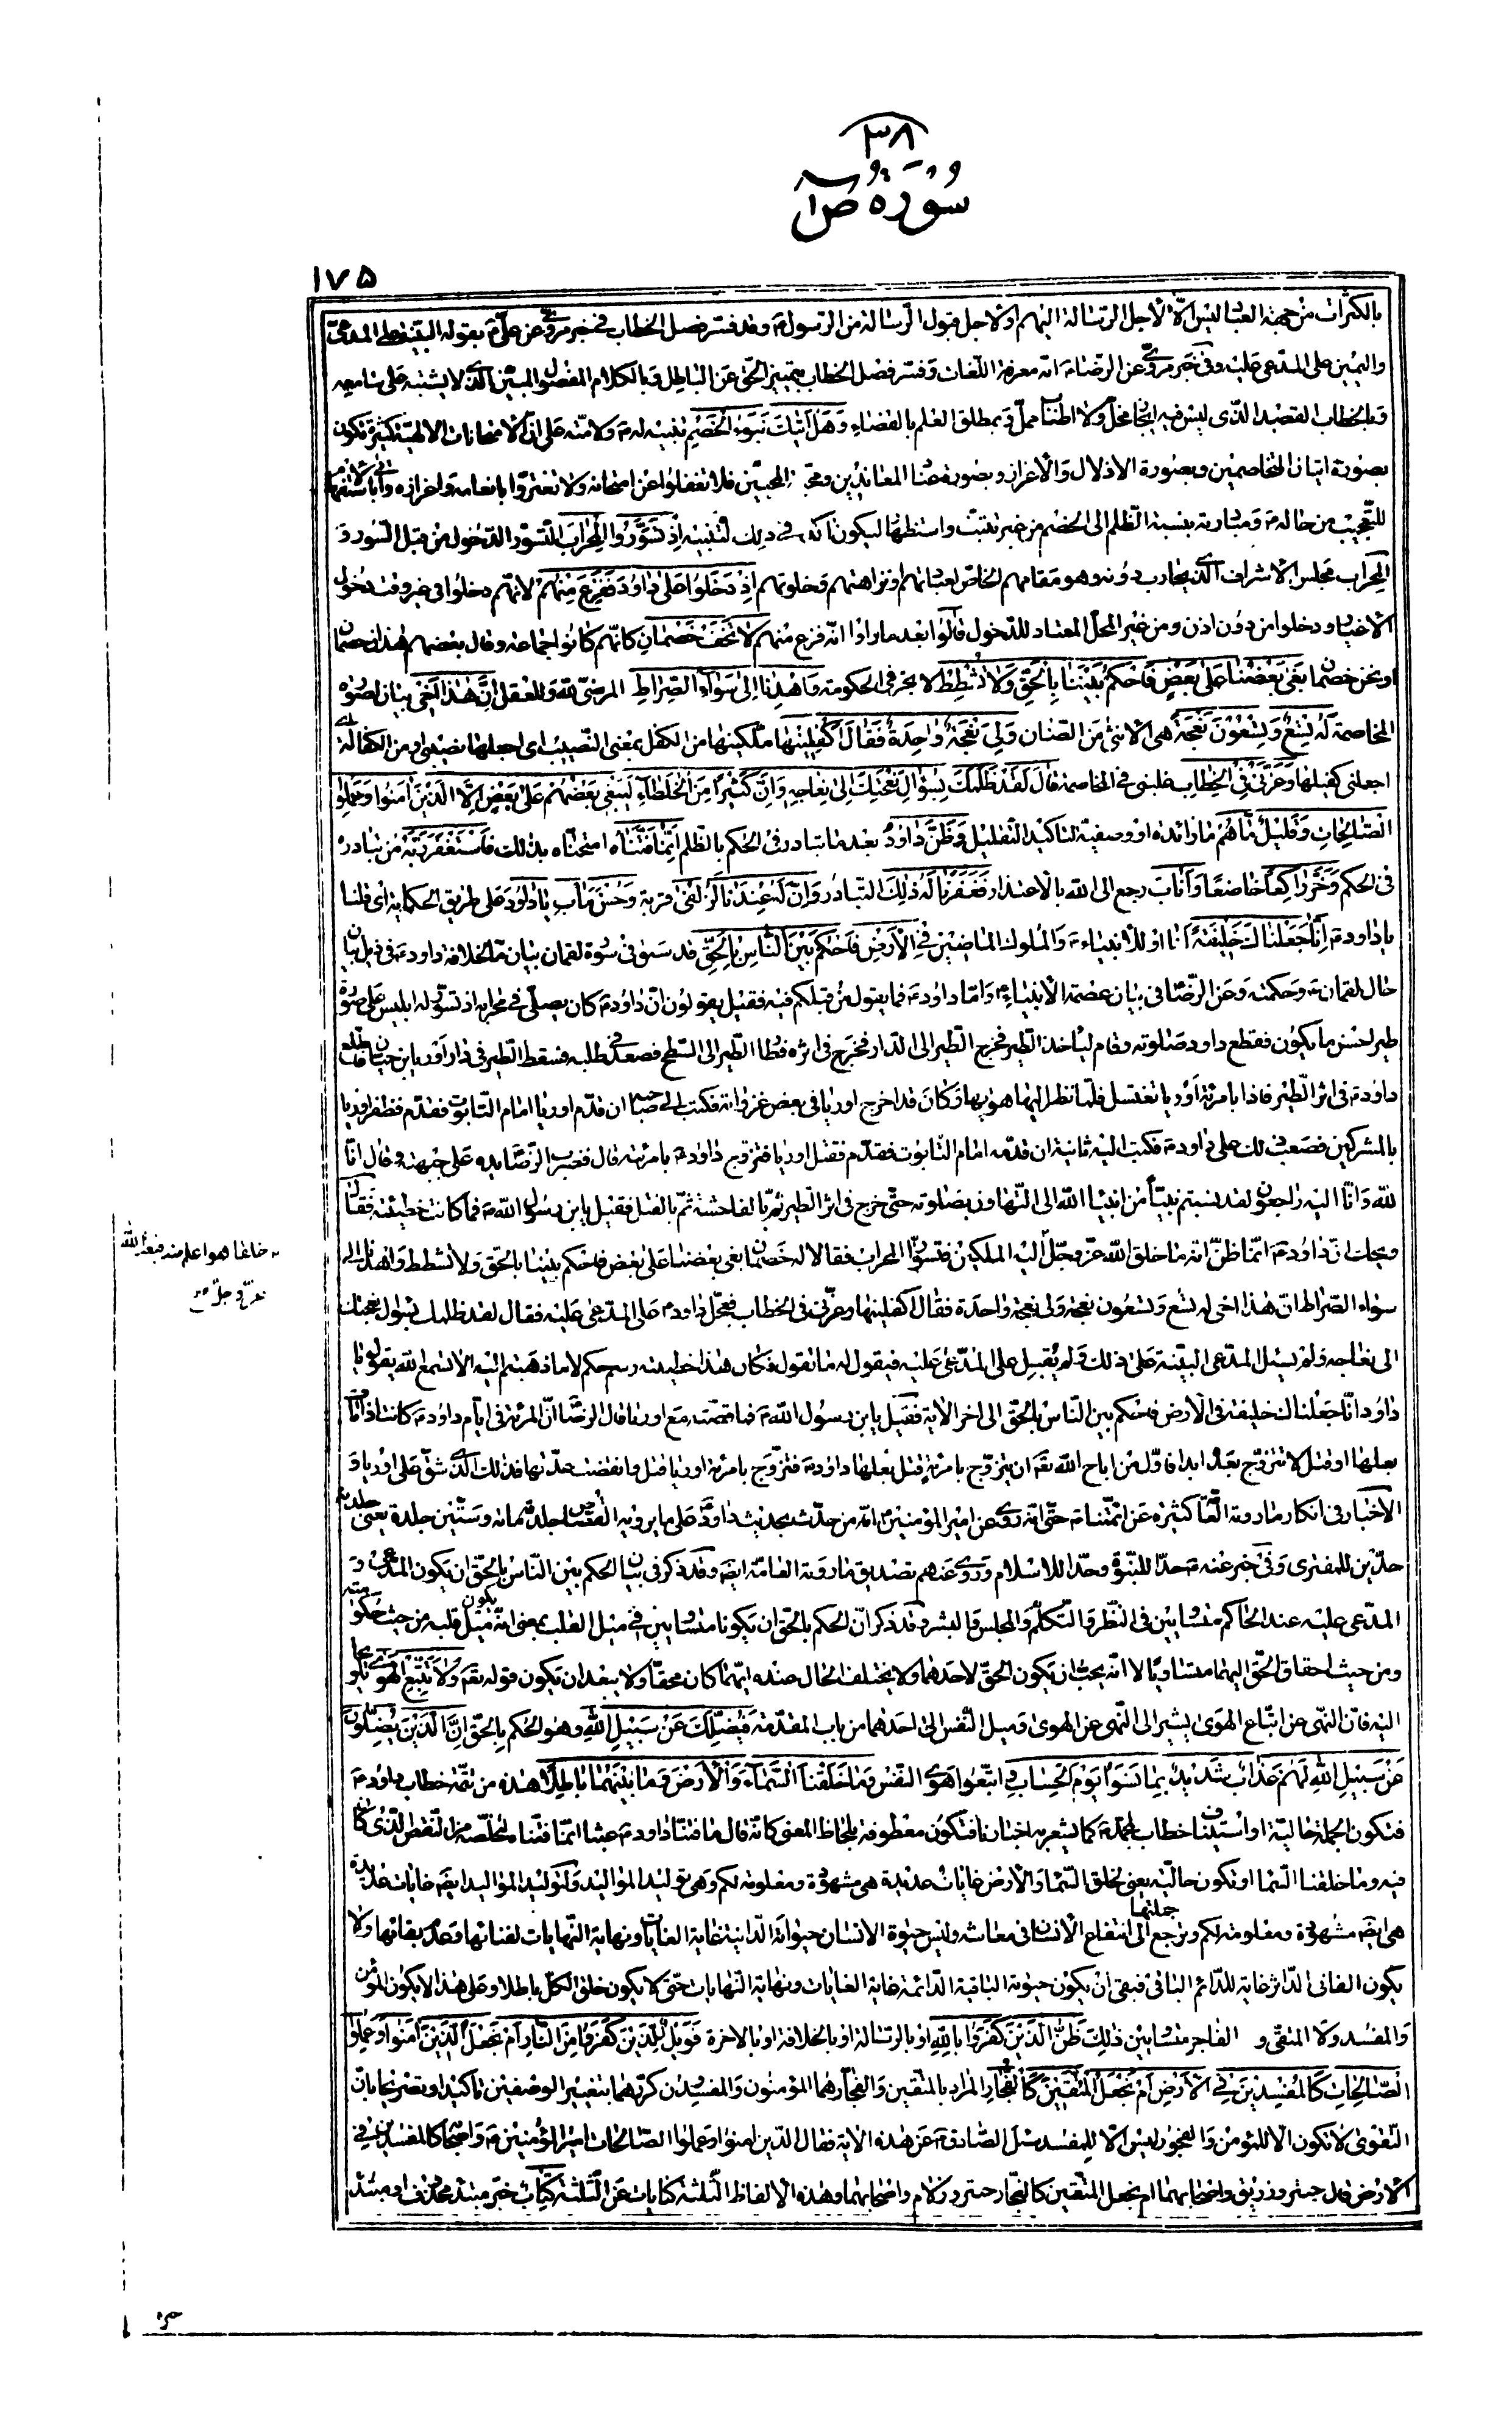 ٣٨
سُوۡرَةُ صۤ
١٧٥
بالكثرات من جهة العباد ليس الّا لاجل الرّسالة اليهم او لاجل قبول الرّسالة من الرّسول ص وقد فسّر فصل الخطاب فى خبر مروىّ عن علىّ ع بقوله البيّنة على المدّعى
واليمين على المدّعى عليه وفى خبر مروىّ عن الرّضا ع انّه معرفة اللّغات وفسّر فصل الخطاب بتمييز الحقّ عن الباطل وبالكلام المفصول المبيّن الّذى لا يشتبه على سامعه
وبالخطاب القصد الّذى ليس فيه ايجاز مخلّ ولا اطناب مملّ وبمطلق العلم بالقضاء وَهَلْ اَتٰيكَ نَبَؤُا الْخَصْمِ تنبيه له ص ولامّته على انّ الامتحانات الالهيّة كثيرة تكون
بصورة اتيان المتخاصمين وبصورة الاذلال والاعزاز وبصورة عناد المعاندين ومحبّة المحبّين فلا تغفلوا عن امتحانه ولا تغترّوا بانعامه واعزازه واتى بالاستفهام
للتّعجيب من حاله ومبادرته بنسبة الظّلم الى الخصم من غير تثبّت واستظهار ليكون آكد فى ذلك التّنبيه اِذْ تَسَوَّرُوا الْمِحْرٰابَ التّسوّر الدّخول من قبل السّور و
المحراب مجلس الاشراف الّذى يحارب دونه وهو مقامهم الخاصّ لعباداتهم او نزاهتهم وخلوتهم اِذْ دَخَلُوا عَلٰى دٰاوُدَ فَفَزِعَ مِنْهُمْ لانّهم دخلوا فى غير وقت دخول
الاغيار ودخلوا من دون اذن ومن غير المحلّ المعتاد للدّخول قٰالُوا بعد ما رأوا انّه فزع منهم لٰا تَخَفْ خَصْمٰانِ كانّهم كانوا جماعة وقال بعضهم هذان خصمان
او نحن خصمان بَغىٰ بَعْضُنٰا عَلىٰ بَعْضٍ فَاحْكُمْ بَيْنَنٰا بِالْحَقِّ وَلٰا تُشْطِطْ لا تجر فى الحكومة وَاهْدِنٰا اِلىٰ سَوٰاءِ الصِّرٰاطِ المرضىّ لله وللعقل اِنَّ هٰذٰا اَخِى بيان لصورة
المخاصمة لَهُ تِسْعٌ وَتِسْعُونَ نَعْجَةً هى الانثى من الضّأن وَلِىَ نَعْجَةٌ وٰاحِدَةٌ فَقٰالَ اَكْفِلْنِيهٰا ملّكنيها من الكفل بمعنى النّصيب اى اجعلها نصيبى او من الكفالة اى
اجعلنى كفيلها وَعَزَّنِى فِى الْخِطٰابِ غلبنى فى المخاصمة قٰالَ لَقَدْ ظَلَمَكَ بِسُؤٰالِ نَعْجَتِكَ اِلىٰ نِعٰاجِهِ وَاِنَّ كَثِيرًا مِنَ الْخُلَطٰاءِ لَيَبْغِى بَعْضُهُمْ عَلىٰ بَعْضٍ اِلَّا الَّذِينَ اٰمَنُوا وَعَمِلُوا
الصّٰالِحٰاتِ وَقَلِيلٌ مٰا هُمْ ما زائدة او وصفيّة لتأكيد التّقليل وَظَنَّ دٰاوُدُ بعد ما تبادر فى الحكم بالظّلم اَنَّمٰا فَتَنّٰاهُ امتحنّاه بذلك فَاسْتَغْفَرَ رَبَّهُ من تبادره
فى الحكم وَخَرَّ رٰاكِعًا خاضعًا وَاَنٰابَ رجع الى الله بالاعتذار فَغَفَرْنٰا لَهُ ذٰلِكَ التّبادر وَاِنَّ لَهُ عِنْدَنٰا لَزُلْفىٰ قربة وَحُسْنَ مَاٰبٍ يٰا دٰاوُدُ على طريق الحكاية اى قلنا
يا داود ع اِنّٰا جَعَلْنٰاكَ خَلِيفَةً لنا او للانبياء ع والملوك الماضين فِى الْاَرْضِ فَاحْكُمْ بَيْنَ النّٰاسِ بِالْحَقِّ قد سبق فى سورة لقمان بيان ما لخلافة داود ع فى ذيل بيان
حال لقمان ع وحكمته وعن الرّضا ع فى بيان عصمة الانبياء ع وامّا داود ع فما يقول من قبلكم فيه فقيل يقولون انّ داود ع كان يصلّى فى محرابه اذ تصوّر له ابليس على صورة
طير احسن ما يكون فقطع داود صلوته وقام ليأخذ الطّير فخرج الطّير الى الدّار فخرج فى اثره فطار الطّير الى السّطح فصعد فى طلبه فسقط الطّير فى دار اوريا بن حيان فاطّلع
داود ع فى اثر الطّير فاذا بامرأة اوريا تغتسل فلمّا نظر اليها هويها وكان قد اخرج اوريا فى بعض غزواته فكتب الى صاحبه ان قدّم اوريا امام التّابوت فقدّم فظفر اوريا
بالمشركين فصعب ذلك على داود ع فكتب اليه ثانية ان قدّمه امام التّابوت فقدّم فقتل اوريا فتزوّج داود ع بامرأته قال فضرب الرّضا ع يده على جبهته وقال انّا
لله وانّا اليه راجعون لقد نسبتم نبيًّا من انبياء الله الى التّهاون بصلوته حتّى خرج فى اثر الطّير ثمّ بالفاحشة ثمّ بالقتل فقيل يا بن رسول الله ص فما كانت خطيئته فقال
ويحك انّ داود ع انّما ظنّ انّه ما خلق الله عزّ وجلّ اليه الملكين فتسوّرا المحراب فقالا له خصمان بغى بعضنا على بعض فاحكم بيننا بالحقّ ولا تشطط واهدنا الى
خلقا هوا علم منه فبعث الله
عزّ وجلّ
سواء الصّراط انّ هذا اخى له تسع وتسعون نعجة ولى نعجة واحدة فقال اكفلنيها وعزّنى فى الخطاب فعجّل داود ع على المدّعى عليه فقال لقد ظلمك بسؤال نعجتك
الى نعاجه ولم يسئل المدّعى البيّنة على ذلك ولم يقبل على المدّعى عليه فيقول له ما تقول فكان هذا خطيئة رسم حكم لا ما ذهبتم اليه الا تسمع الله يقول يا
داود انّا جعلناك خليفة فى الارض فاحكم بين النّاس بالحقّ الى اخر الاية فقيل يا بن رسول الله ص فما قصّته مع اوريا قال الرّضا ع انّ المرأة فى ايّام داود ع كانت اذا مات
بعلها او قتل لا تتزوّج بعده ابدا فاوّل من اباح الله تعالى ان يتزوّج بامرأة قتل بعلها داود ع فتزوّج بامرأة اوريا لمّا قتل وانقضت عدّتها فذلك الّذى شقّ على اوريا و
الاخبار فى انكار ما روته العامّة كثيرة عن ائمّتنا ع حتّى انّه روى عن امير المؤمنين ع انّه من حدّث بحديث داود ع على ما يرويه القصّاص جلدته مائة وستّين جلدة يعنى جلدته
حدّين للمفترى وفى خبر عنه ع حدّا للنبوّة وحدّا للاسلام وروى عنهم تصديق ما روته العامّة ايضا وقد ذكر فى بيان الحكم بين النّاس بالحقّ ان يكون المدّعى و
المدّعى عليه عند الحاكم متساويين فى النّظر والتّكلّم والمجلس والبشر وقد ذكر انّ الحكم بالحقّ ان يكونا متساويين فى ميل القلب بمعنى انّه يكون ميل قلبه من حيث حكومته
ومن حيث احقاق الحقّ اليهما متساويًا لا انّه يحبّ ان يكون الحقّ لاحدهما ولا يختلف الحال عنده ايّهما كان محقّا ولا يبعد ان يكون قوله تعالى وَلٰا تَتَّبِعِ الْهَوىٰ
اليه فانّ النّهى عن اتّباع الهوى يشير الى النّهى عن الهوى وميل النّفس الى احدهما من باب المقدّمة فَيُضِلَّكَ عَنْ سَبِيلِ اللهِ وهو الحكم بالحقّ اِنَّ الَّذِينَ يَضِلُّونَ
عَنْ سَبِيلِ اللهِ لَهُمْ عَذٰابٌ شَدِيدٌ بِمٰا نَسُوا يَوْمَ الْحِسٰابِ واتّبعوا هوى النّفس وَمٰا خَلَقْنَا السَّمٰاءَ وَالْاَرْضَ وَمٰا بَيْنَهُمٰا بٰاطِلًا هذه من تتمّة خطاب داود ع
فتكون الجملة حاليّة او استيناف خطاب لمحمّد ص كما يشعر به اخبارنا فتكون معطوفة بلحاظ المعنى كانّه قال ما فتنّا داود ع عبثا انّما فتنّاه لنخلّصه من النّقص الّذى كان
فيه وما خلقنا السّماء او تكون حاليّة يعنى لخلق السّماء والارض غايات عديدة هى مشهودة ومعلومة لكم وهى توليد المواليد ولتوليد المواليد ايضا غايات عديدة
هى ايضا مشهودة ومعلومة لكم وترجع جملتها الى انتفاع الانسان فى معاشه وليس حيوة الانسان حيواته الدّانية غاية الغايات ونهاية النّهايات لفنائها وعدم بقائها ولا
يكون الفانى الدّاثر غاية للدّائم الباقى فبقى ان يكون حيوته الباقية الدّائمة غاية الغايات ونهاية النّهايات حتّى لا يكون خلق الكلّ باطلا وعلى هذا لا يكون المؤمن
والمفسد ولا المتّقى و الفاجر متساويين ذٰلِكَ ظَنُّ الَّذِينَ كَفَرُوا بالله او بالرّسالة او بالخلافة او بالاخرة فَوَيْلٌ لِلَّذِينَ كَفَرُوا مِنَ النّٰارِ اَمْ نَجْعَلُ الَّذِينَ اٰمَنُوا وَعَمِلُوا
الصّٰالِحٰاتِ كَالْمُفْسِدِينَ فِى الْاَرْضِ اَمْ نَجْعَلُ الْمُتَّقِينَ كَالْفُجّٰارِ المراد بالمتّقين والفجّار هما المؤمنون والمفسدون كرّرهما بتغيير الوصفين تأكيدا وتصريحا بانّ
التّقوى لا تكون الّا للمؤمن والفجور ليس الّا للمفسد سئل الصّادق ع عن هذه الاية فقال الّذين امنوا وعملوا الصّالحات امير المؤمنين ع واصحابه كالمفسدين فى
الارض قال حبتر وزريق واصحابهما ام نجعل المتّقين كالفجّار حبتر ودلام واصحابهما وهذه الالفاظ الثّلثة كنايات عن الثّلثة كِتٰابٌ خبر مبتدء محذوف او مبتدء